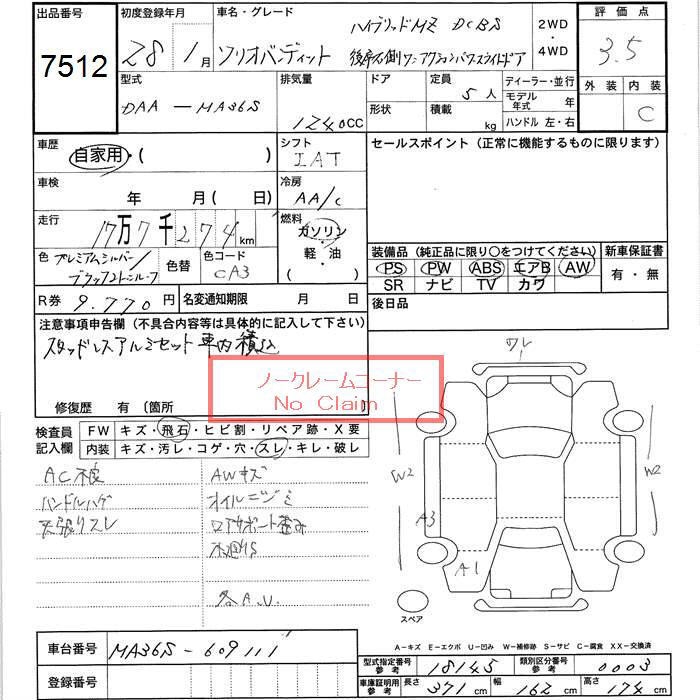 出品番号
7512
初度登録年月
28年 1月
車名・グレード
ハイブリッドMZ DCBS
ソリオバンディット 後席右側ワンアクションパワースライドドア
2WD
・
4WD
評価点
3.5
外装 内装
C
型式
DAA-MA36S
排気量
1240cc
ドア
形状
定員
5人
積載
kg
ディーラー・並行
モデル年式 年
ハンドル 左・右
車歴
自家用・( )
シフト
IAT
車検
年 月( 日)
冷房
AA/C
走行
17万7千274km
燃料
ガソリン
軽・油
( )
色
プレミアムシルバー/
ブラック2トンルーフ
色替
色コード
CA3
R券 9.770円
名変通知期限 月 日
セールスポイント(正常に機能するものに限ります)
装備品(純正品に限り○をつけてください)
PS PW ABS エアB AW
SR ナビ TV カワ
新車保証書
有・無
後日品
注意事項申告欄(不具合内容等は具体的に記入して下さい)
スタッドレスアルミセット車内積込
ノークレームコーナー
No Claim
修復歴 有〔箇所
検査員
記入欄
FW キズ・飛石・ヒビ割・リペア跡・X要
内装 キズ・汚レ・コゲ・穴・スレ・キレ・破レ
AC不良
ハンドルハゲ
天張りスレ
AWキズ
オイルニジミ
ロアサポート歪み
各A.U.
ワレ
W2
W2
A3
A1
スペア
A-キズ E-エクボ U-凹み W-補修跡 S-サビ C-腐食 XX-交換済
車台番号
MA36S-609111
登録番号
型式指定番号
参考
18145
類別区分番号
参考
0003
車庫証明用
参考
長さ 371cm
幅 162cm
高さ 174cm